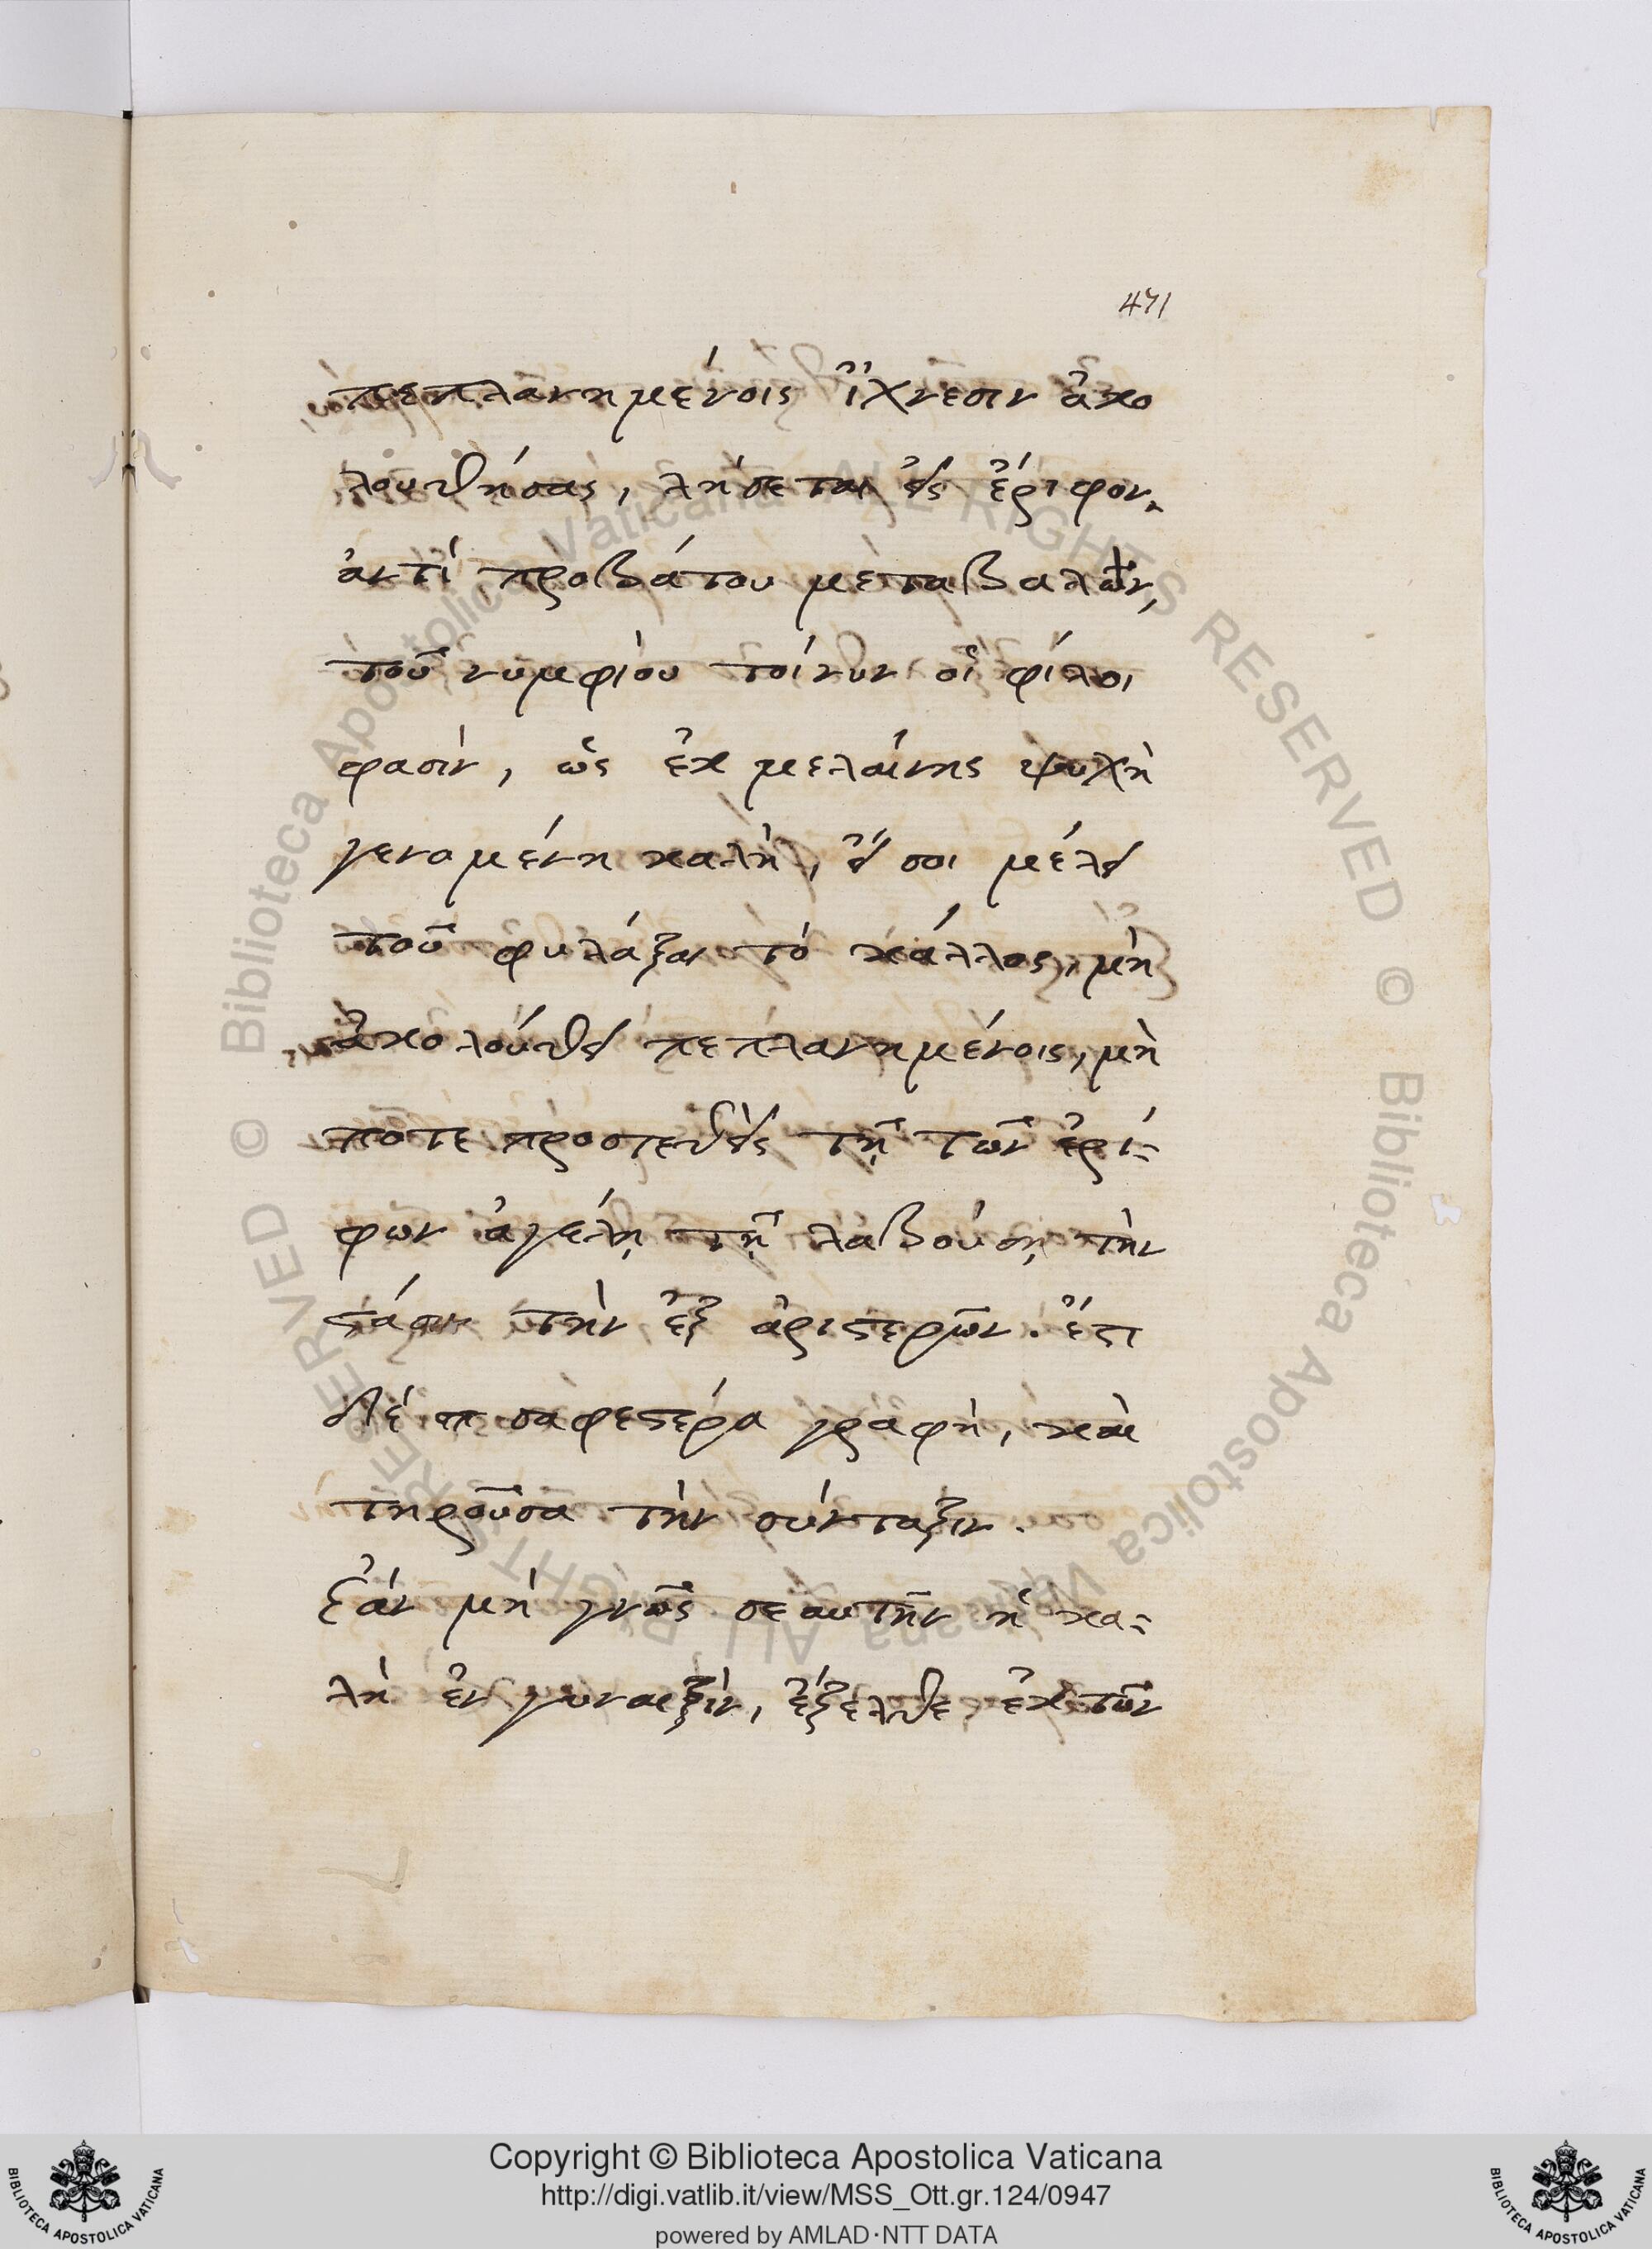 471
πεπλανημένοις ἴχνεσιν ἀκο
λουθήσας, λήσεται εἰς ἔριφον
ἀντὶ προβάτου μεταβαλών,
τοῦ νυμφίου τοίνυν οἱ φίλοι
φασίν, ὡς ἐκ μελαίνης ψυχὴ
γεναμένη καλὴ, εἴ σοι μέλει
τοῦ φυλάξαι τὸ κάλλος, μὴ
ἀκολούθει πεπλανημένοις, μὴ
ποτε προστεθεῖς τῇ τῶν ἐρί-
φων ἀγέλῃ τῇ λαβούσῃ τὴν
στάσιν τὴν ἐξ ἀριστερῶν. ἔστι
δέ τι σαφεστέρα γραφὴ, καὶ
τηροῦσα τὴν σύνταξιν.
Ἐὰν μὴ γνῶς σεαυτὴν ἡ κα-
λὴ ἐν γυναιξὶν, ἔξελθε ἐκ τῶν
Copyright © Biblioteca Apostolica Vaticana
http://digi.vatlib.it/view/MSS_Ott.gr.124/0947
powered by AMLAD·NTT DATA
BIBLIOTECA APOSTOLICA VATICANA
BIBLIOTECA APOSTOLICA VATICANA
© Biblioteca Apostolica Vaticana ALL RIGHTS RESERVED © Biblioteca Apostolica Vaticana ALL RIGHTS RESERVED